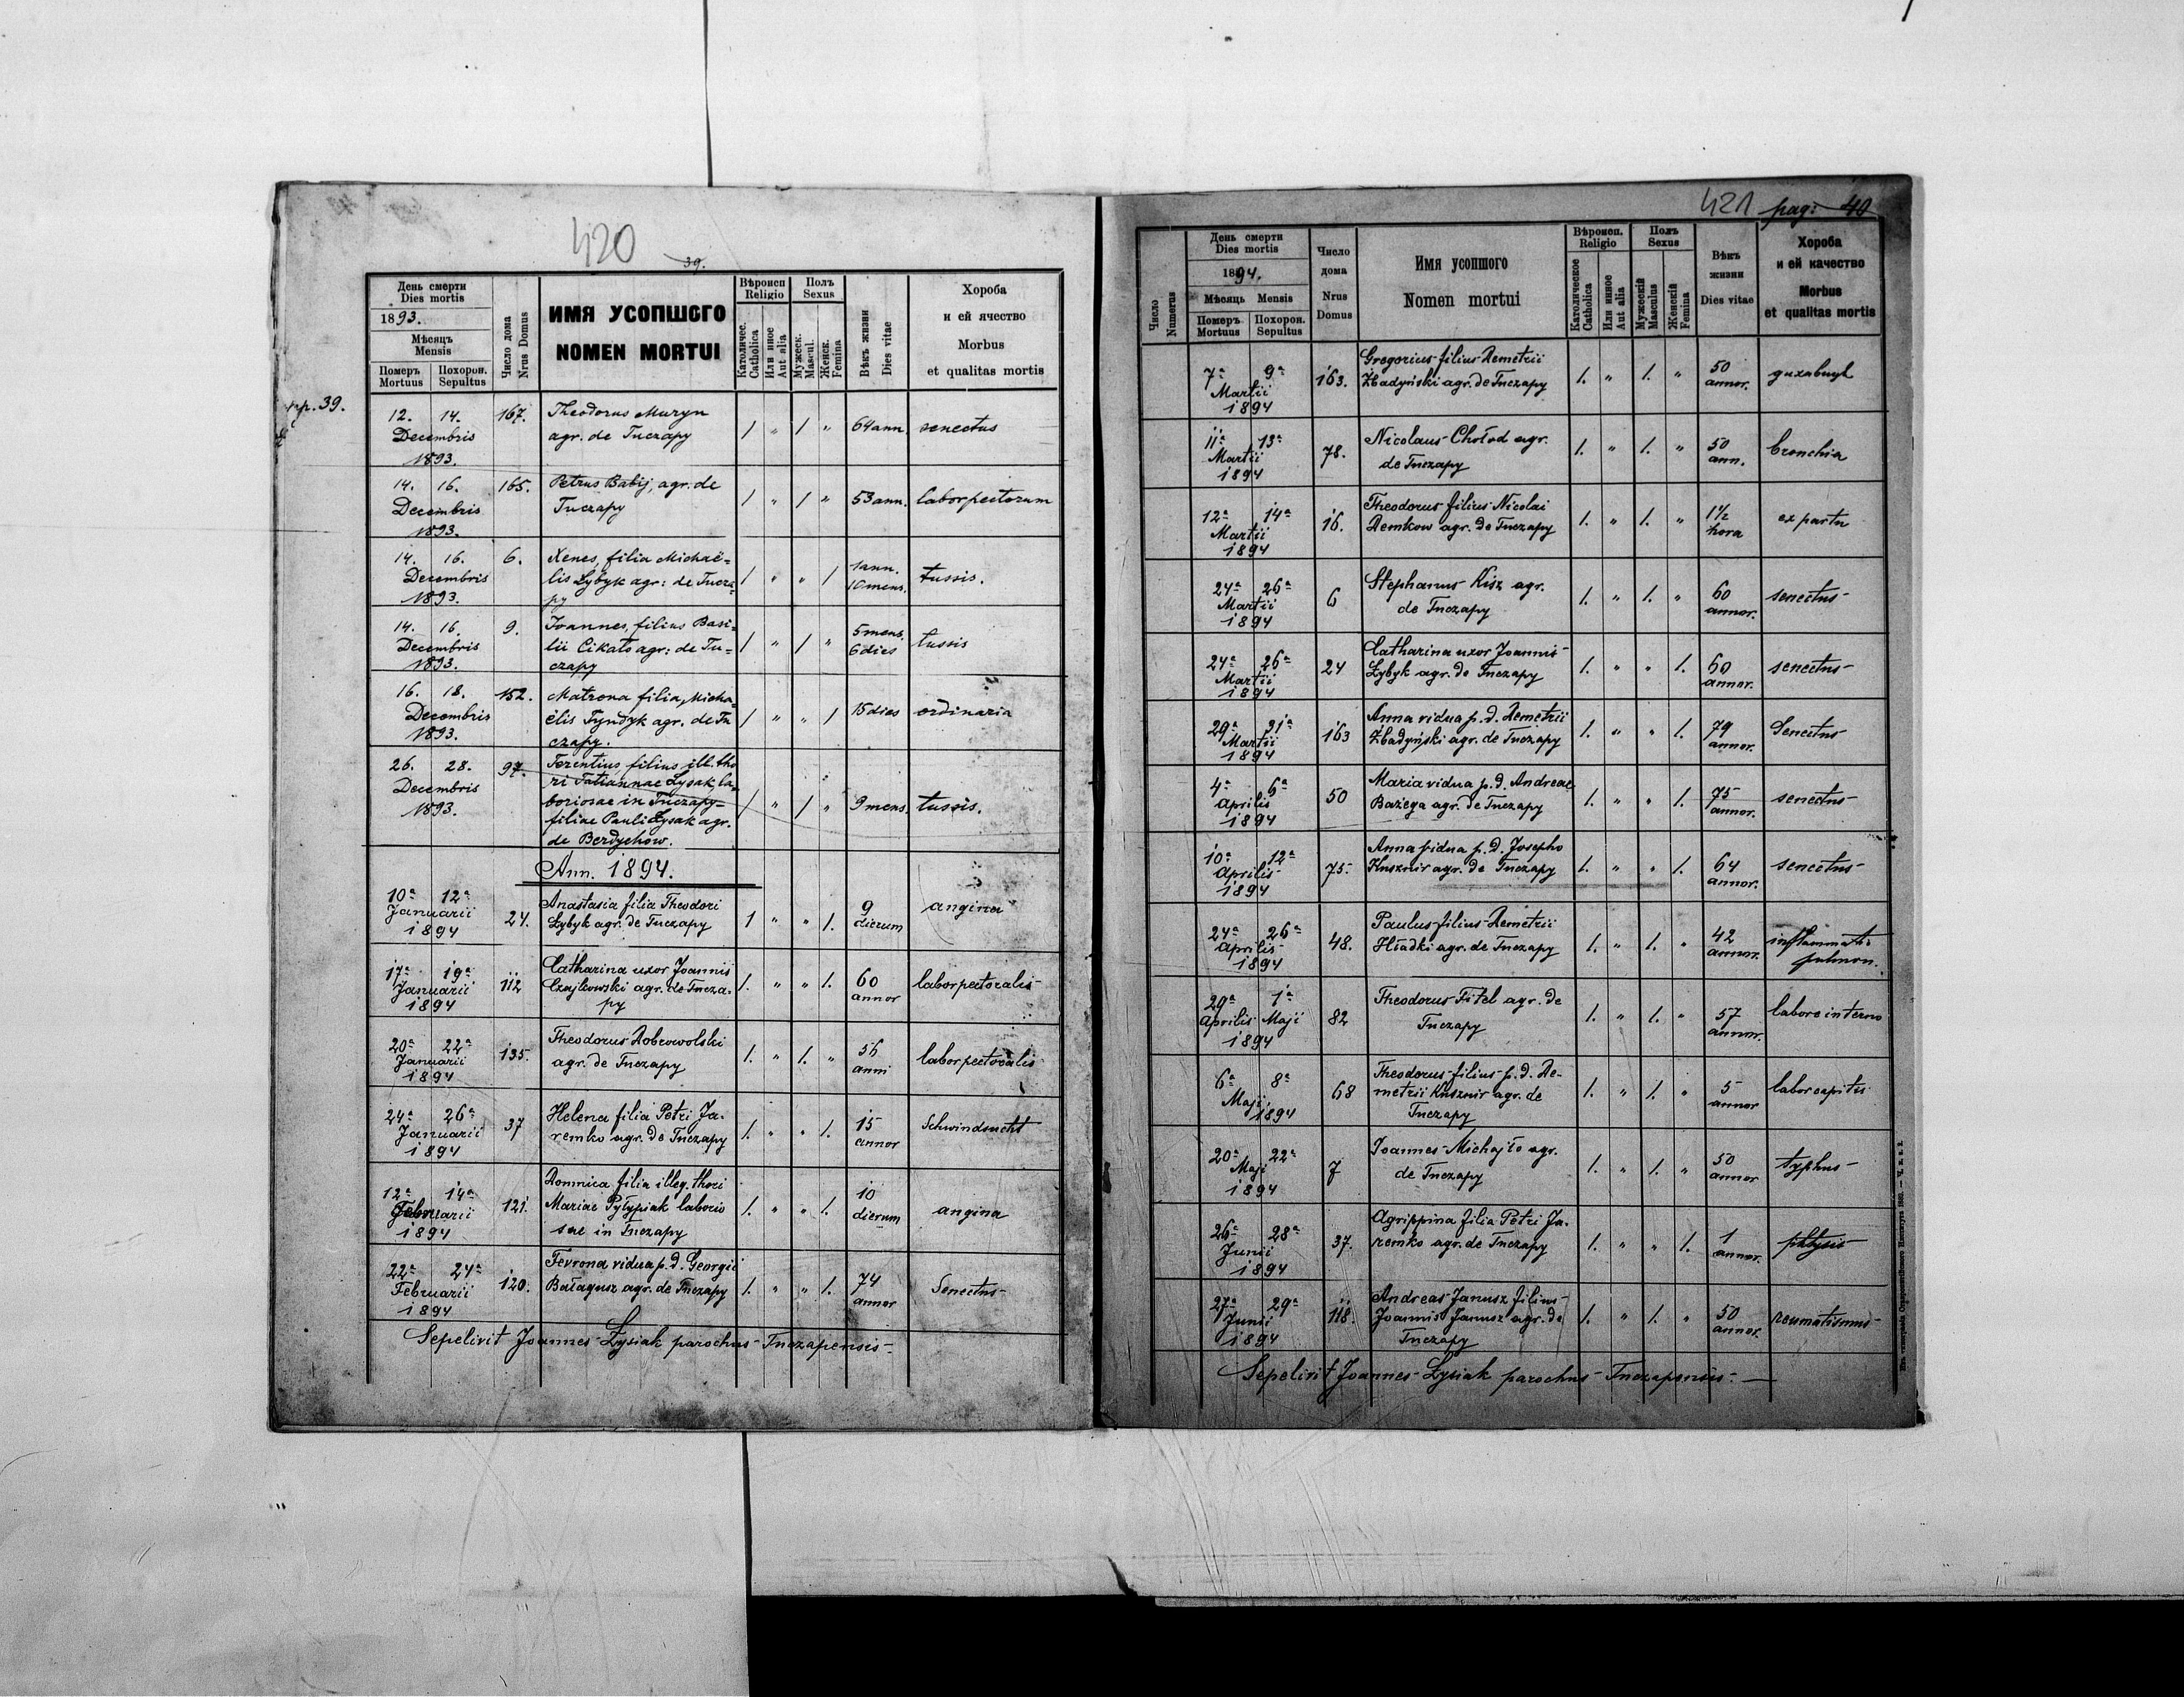 420
39.
День смерти
Dies mortis
1893.
Мѣсяцъ
Mensis
Померъ Похорон.
Mortuus Sepultus
Число дома
Nrus Domus
ИМЯ УСОПШОГО
NOMEN MORTUI
Вѣроисп
Religio
Католичес.
Catholica
Или иное
Aut alia
Полъ
Sexus
Мужеск.
Mascul.
Женск.
Femina
Вѣкъ жизни
Dies vitae
Хороба
и ей ячество
Morbus
et qualitas mortis
pp. 39.
12. 14. 167. Theodorus Muryn
Decembris agr. de Tuczapy / " / " 64 ann. senectus
1893.
14. 16. 165. Petrus Babij, agr. de
Decembris Tuczapy / " / " 53 ann. labor pectorum
1893.
14. 16. 6. Xenes, filia Michaë-
Decembris lis Łybyk agr: de Tucza- / " " / 1 ann. 10 mens. tussis.
1893. py
14. 16. 9. Joannes, filius Basi-
Decembris lii Cikało agr: de Tu- / " / " 5 mens. 6 dies tussis
1893. czapy
16. 18. 152. Matrona filia Micha-
Decembris ëlis Tyndyk agr. de Tu / " " / 15 dies ordinaria
1893. czapy.
26. 28. 97. Terentius filius ill. tho
Decembris ri Tatiannae Łysak la-
1893. boriosae in Tuczapy- / " / " 9 mens. tussis.
filiae Pauli Łysak agr.
de Berdychow.
Ann. 1894.
10a 12a Anastasia filia Theodori
Januarii 24. Łybyk agr. de Tuczapy 1 " " 1. 9 dierum angina
1894
17a 19a Catharina uxor Joannis
Januarii 112 Czajkowski agr. de Tucza- 1. " " 1. 60 annor labor pectoralis
1894 py
20a 22a Theodorus Dobrowolski
Januarii 135. agr. de Tuczapy 1. " 1. " 56 anni labor pectoralis
1894
24a 26a Helena filia Petri Ja-
Januarii 37 remko agr. de Tuczapy 1. " " 1. 15 annor Schwindsucht
1894
12a 14a Domnica filia illeg. thori
Februarii 121. Mariae Pyłypiak laborio 1. " " 1. 10 dierum angina
1894 sae in Tuczapy
22a 24a Fevrona vidua p. d. Georgii
Februarii 120. Bałagusz agr. de Tuczapy 1. " " 1. 74 annor Senectus
1894
Sepelivit Joannes Łysiak parochus Tuczapensis.
421 pag: 40
Число
Numerus
День смерти
Dies mortis
1894.
Мѣсяць Mensis
Померъ Похорон.
Mortuus Sepultus
Число
дома
Nrus
Domus
Имя усопшого
Nomen mortui
Вѣроисп.
Religio
Католическое
Catholica
Или инное
Aut alia
Полъ
Sexus
Мужескій
Masculus
Женскій
Femina
Вѣкъ
жизни
Dies vitae
Хороба
и ей качество
Morbus
et qualitas mortis
7a 9a Gregorius filius Demetrii
Martii 163. Zbadyński agr. de Tuczapy 1. " 1. " 50 annor.
1894
11a 13a Nicolaus Chołod agr.
Martii 78. de Tuczapy 1. " 1. " 50 ann. bronchia
1894
12a 14a Theodorus filius Nicolai
Martii 16. Demkow agr. de Tuczapy 1. " 1. " 1½ hora ex partu
1894
24a 26a Stephanus Kisz agr.
Martii 6 de Tuczapy 1. " 1. " 60 annor. senectus
1894
24a 26a Catharina uxor Joannis
Martii 24 Łybyk agr. de Tuczapy 1. " " 1. 60 annor. senectus
1894
29a 31a Anna vidua p. d. Demetrii
Martii 163 Zbadyński agr. de Tuczapy 1. " " 1. 79 annor. Senectus
1894
4a 6a Maria vidua p. d. Andreae
Aprilis 50 Bazega agr. de Tuczapy 1. " " 1. 75 annor. senectus
1894
10a 12a Anna vidua p. d. Josepho
Aprilis 75. Kusznir agr. de Tuczapy 1. " " 1. 64 annor. senectus
1894
24a 26a Paulus filius Demetrii
Aprilis 48. Hładki agr. de Tuczapy 1. " 1. " 42 annor. inflammati. pulmon.
1894
29a 1a Theodorus Fitel agr. de
Aprilis Maji 82 Tuczapy 1. " 1. " 57 annor. labore interno
1894
6a 8a Theodorus filius p. d. De-
Maji 68 metrii Kusznir agr. de 1. " 1. " 5 annor labor capitis
1894 Tuczapy
20a 22a Joannes Michajło agr.
Maji 7 de Tuczapy 1. " 1. " 50 annor typhus
1894
26a 28a Agrippina filia Petri Ja-
Junii 37. remko agr. de Tuczapy 1. " " 1. 1 annor. phtysis
1894
27a 29a Andreas Janusz filius
Junii 118. Joannis Janusz agr. de 1. " 1. " 50 annor. reumatismus
1894 Tuczapy
Sepelivit Joannes Łysiak parochus Tuczapensis.